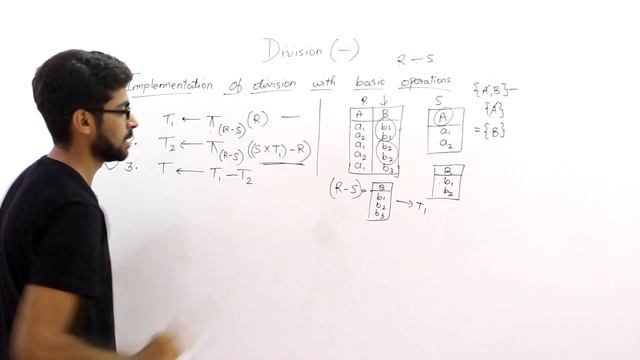 Division (—)
R — S
Implementation of division with basic operations
{A,B} —
{A}
= {B}
T₁ ← π(R-S) (R) —
T₂ ← π(R-S) ((S × T₁) - R)
3. T ← T₁ - T₂
R
A B
a₁ b₁
a₂ b₁
a₁ b₂
a₂ b₂
a₁ b₃
S
A
a₁
a₂
B
b₁
b₂
(R-S) =
B
b₁
b₂
b₃
→ T₁